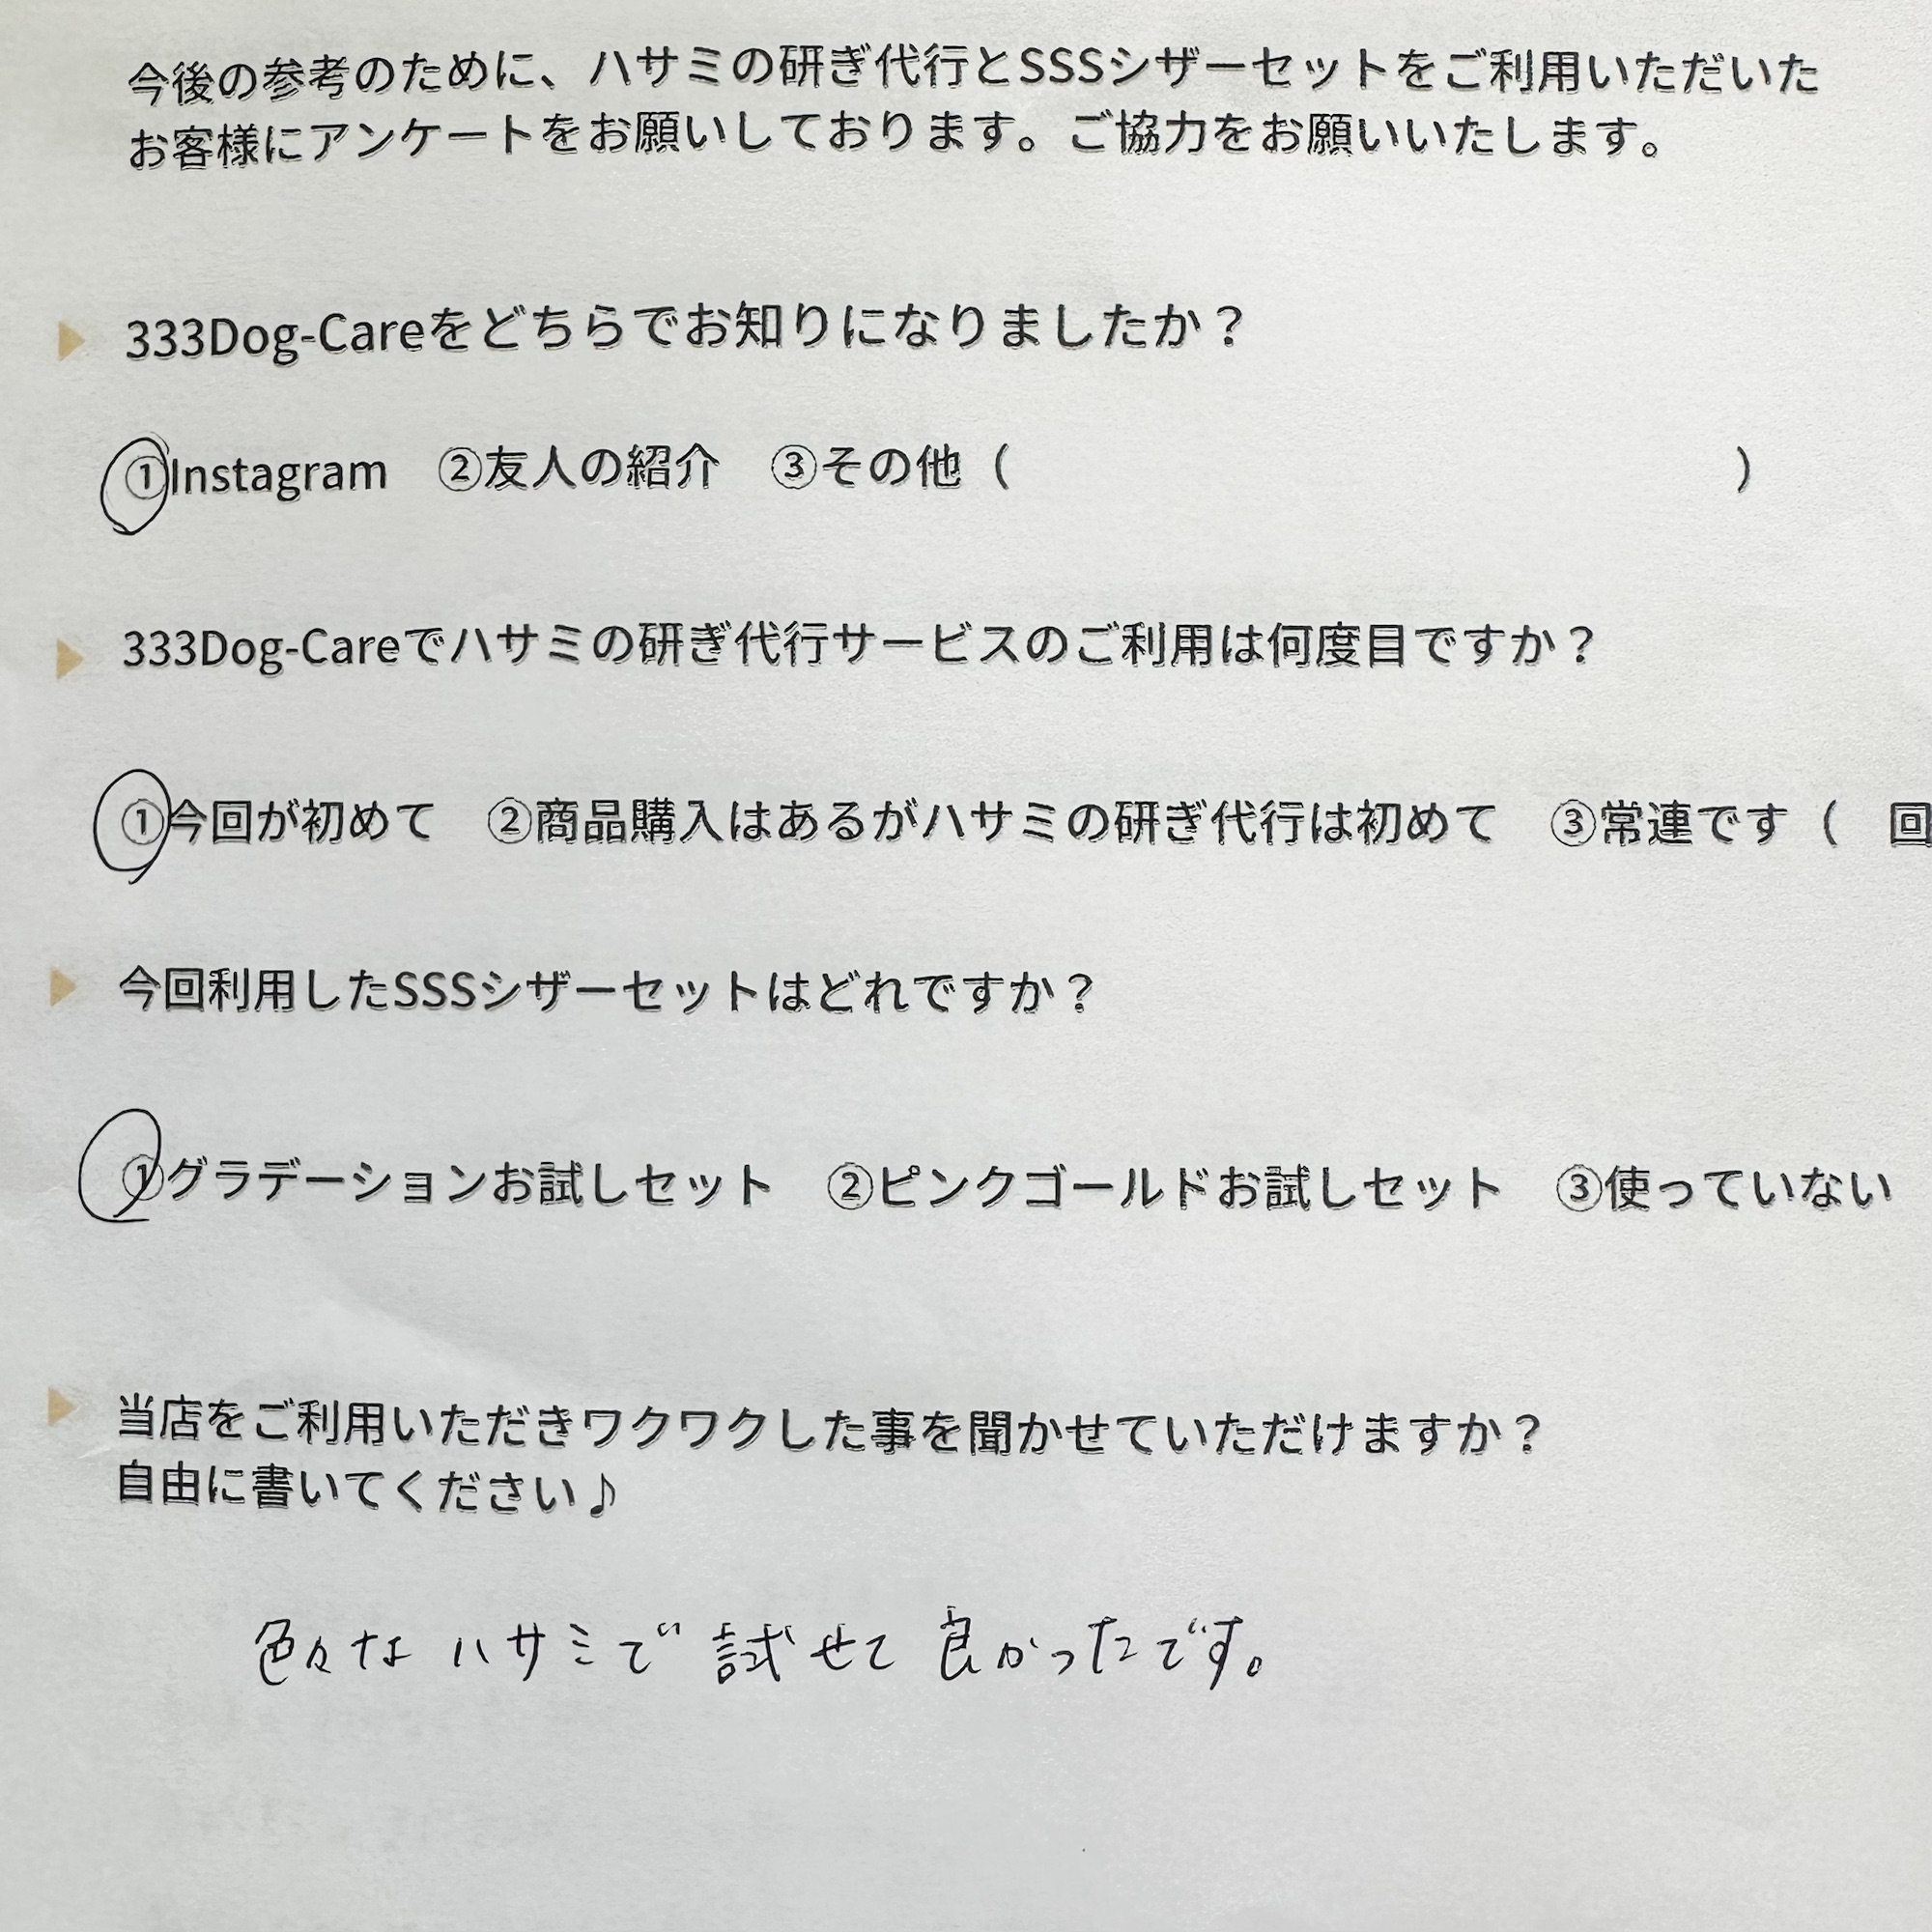 今後の参考のために、ハサミの研ぎ代行とSSSシザーセットをご利用いただいた
お客様にアンケートをお願いしております。ご協力をお願いいたします。
333Dog-Careをどちらでお知りになりましたか？
①Instagram　②友人の紹介　③その他（　　　　　　　　　　　　　　　）
333Dog-Careでハサミの研ぎ代行サービスのご利用は何度目ですか？
①今回が初めて　②商品購入はあるがハサミの研ぎ代行は初めて　③常連です（　回
今回利用したSSSシザーセットはどれですか？
①グラデーションお試しセット　②ピンクゴールドお試しセット　③使っていない
当店をご利用いただきワクワクした事を聞かせていただけますか？
自由に書いてください♪
色々な ハサミで 試せて 良かったです。